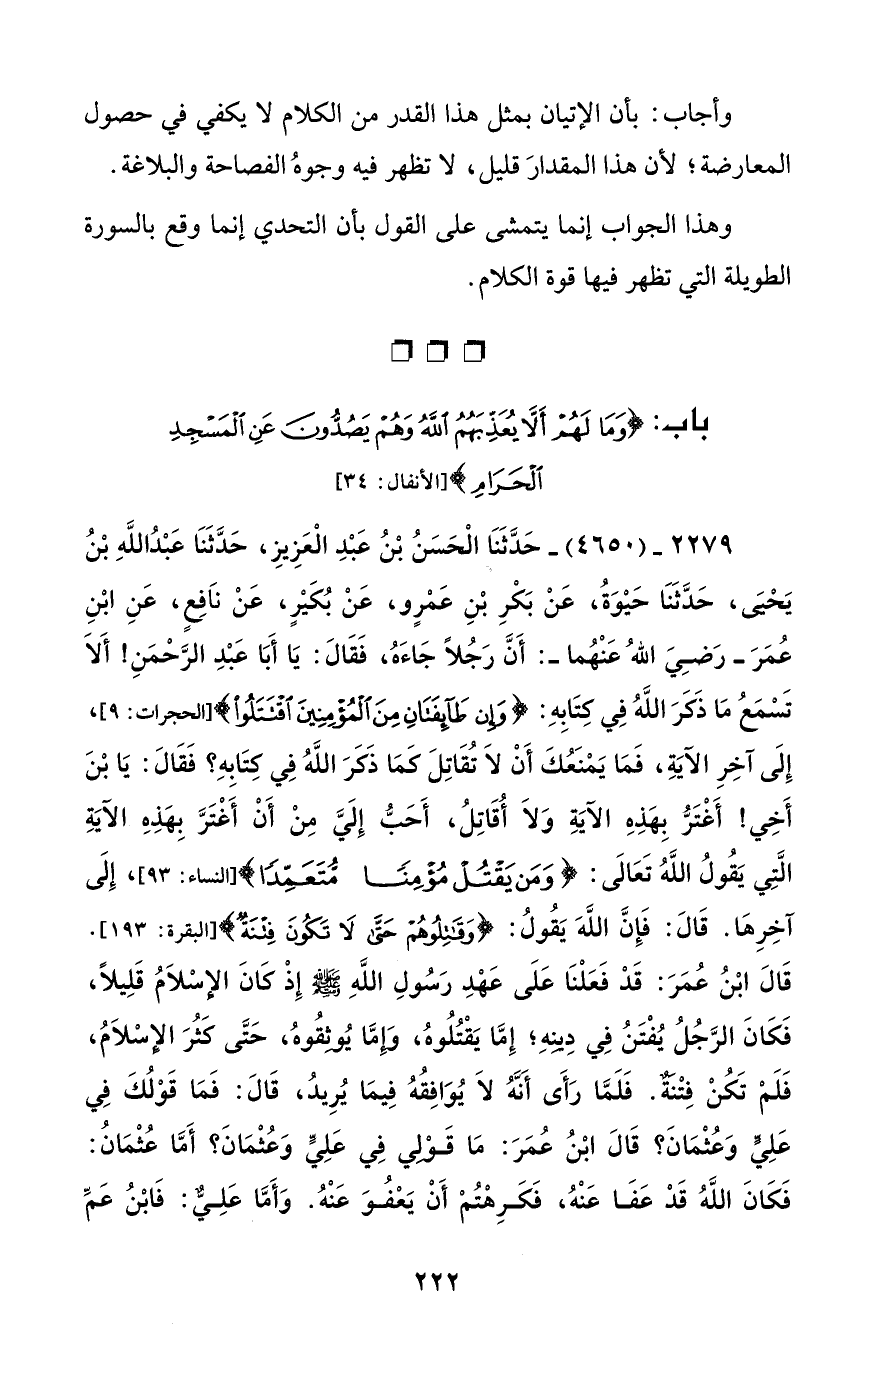 وأجاب: بأن الإتيان بمثل هذا القدر من الكلام لا يكفي في حصول
المعارضة؛ لأن هذا المقدارَ قليل، لا تظهر فيه وجوهُ الفصاحة والبلاغة.
وهذا الجواب إنما يتمشى على القول بأن التحدي إنما وقع بالسورة
الطويلة التي تظهر فيها قوة الكلام.
باب: ﴿وَمَا لَهُمْ أَلَّا يُعَذِّبَهُمُ ٱللَّهُ وَهُمْ يَصُدُّونَ عَنِ ٱلْمَسْجِدِ
ٱلْحَرَامِ﴾[الأنفال: ٣٤]
٢٢٧٩ ـ (٤٦٥٠) ـ حَدَّثَنَا الْحَسَنُ بْنُ عَبْدِ الْعَزِيزِ، حَدَّثَنَا عَبْدُاللَّهِ بْنُ
يَحْيَى، حَدَّثَنَا حَيْوَةُ، عَنْ بَكْرِ بْنِ عَمْرٍو، عَنْ بُكَيْرٍ، عَنْ نَافِعٍ، عَنِ ابْنِ
عُمَرَ ـ رَضِيَ اللهُ عَنْهُما ـ: أَنَّ رَجُلاً جَاءَهُ، فَقَالَ: يَا أَبَا عَبْدِ الرَّحْمَنِ! أَلاَ
تَسْمَعُ مَا ذَكَرَ اللَّهُ فِي كِتَابِهِ: ﴿وَإِن طَآئِفَتَانِ مِنَ ٱلْمُؤْمِنِينَ ٱقْتَتَلُوا۟﴾[الحجرات: ٩]،
إِلَى آخِرِ الآيَةِ، فَمَا يَمْنَعُكَ أَنْ لاَ تُقَاتِلَ كَمَا ذَكَرَ اللَّهُ فِي كِتَابِهِ؟ فَقَالَ: يَا بْنَ
أَخِي! أَغْتَرُّ بِهَذِهِ الآيَةِ وَلاَ أُقَاتِلُ، أَحَبُّ إِلَيَّ مِنْ أَنْ أَغْتَرَّ بِهَذِهِ الآيَةِ
الَّتِي يَقُولُ اللَّهُ تَعَالَى: ﴿وَمَن يَقْتُلْ مُؤْمِنًا مُّتَعَمِّدًا﴾[النساء: ٩٣]، إِلَى
آخِرِهَا. قَالَ: فَإِنَّ اللَّهَ يَقُولُ: ﴿وَقَٰتِلُوهُمْ حَتَّىٰ لَا تَكُونَ فِتْنَةٌ﴾[البقرة: ١٩٣].
قَالَ ابْنُ عُمَرَ: قَدْ فَعَلْنَا عَلَى عَهْدِ رَسُولِ اللَّهِ ﷺ إِذْ كَانَ الإِسْلاَمُ قَلِيلاً،
فَكَانَ الرَّجُلُ يُفْتَنُ فِي دِينِهِ؛ إِمَّا يَقْتُلُوهُ، وَإِمَّا يُوثِقُوهُ، حَتَّى كَثُرَ الإِسْلاَمُ،
فَلَمْ تَكُنْ فِتْنَةٌ. فَلَمَّا رَأَى أَنَّهُ لاَ يُوَافِقُهُ فِيمَا يُرِيدُ، قَالَ: فَمَا قَوْلُكَ فِي
عَلِيٍّ وَعُثْمَانَ؟ قَالَ ابْنُ عُمَرَ: مَا قَوْلِي فِي عَلِيٍّ وَعُثْمَانَ؟ أَمَّا عُثْمَانُ:
فَكَانَ اللَّهُ قَدْ عَفَا عَنْهُ، فَكَرِهْتُمْ أَنْ يَعْفُوَ عَنْهُ. وَأَمَّا عَلِيٌّ: فَابْنُ عَمِّ
٢٢٢